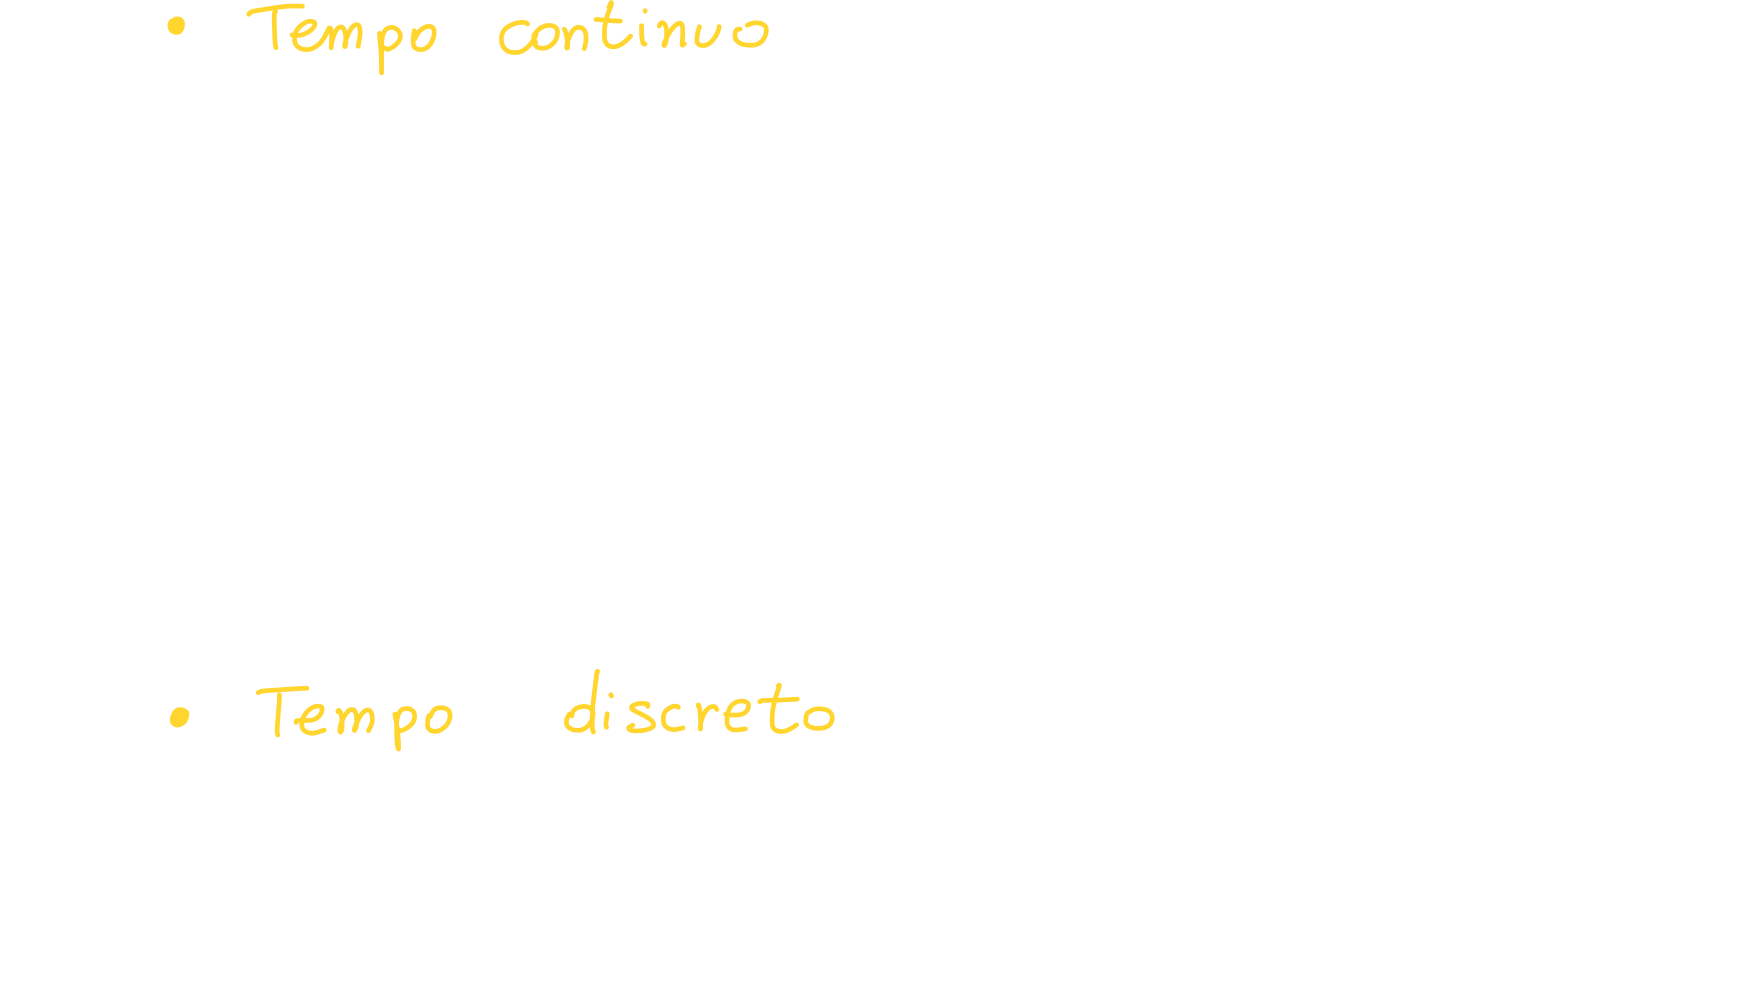 • Tempo continuo
• Tempo discreto